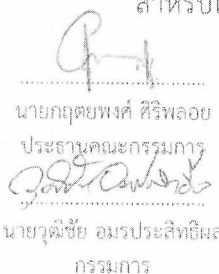 สำหรับเ
นายกฤตยพงศ์ ศิริพลอย
ประธานคณะกรรมการ
นายวุฒิชัย อมรประสิทธิผล
กรรมการ